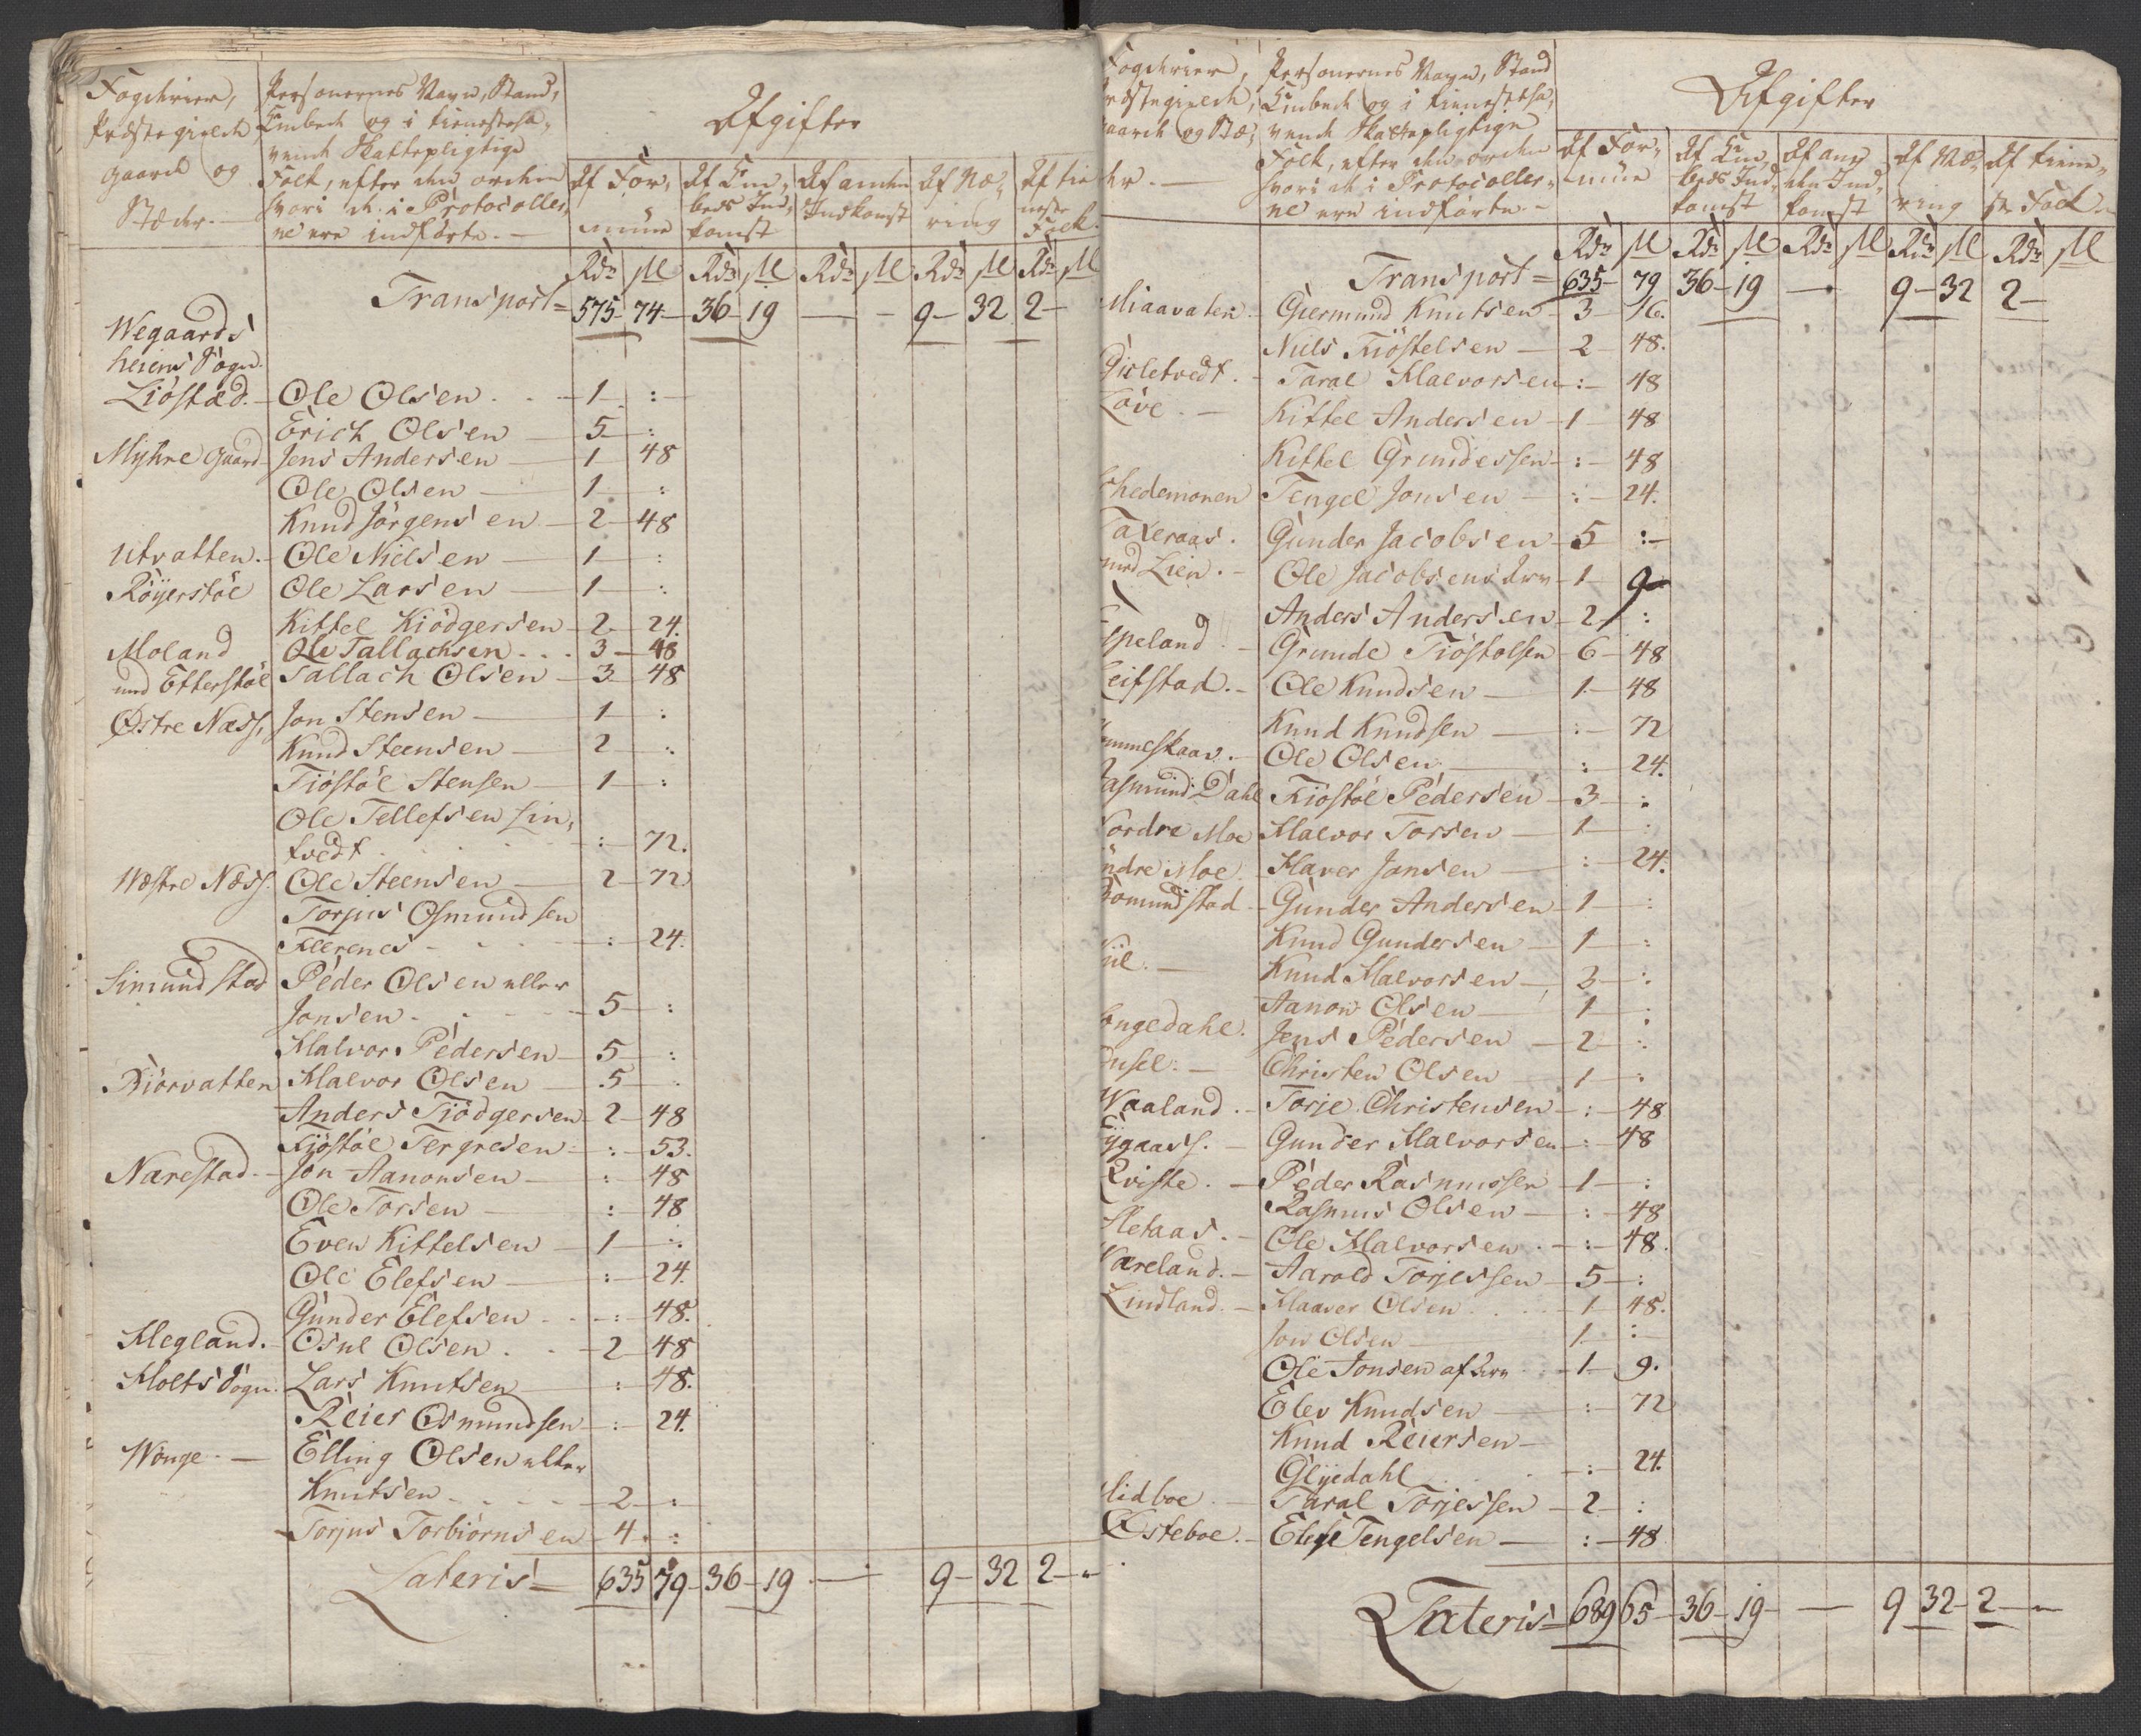 Fogderier,
Præstegield
gaarde og
Stæder.
Personernes Navn, Stand,
Embede og i tienesteha,
vende Skattepligtige
Folk, efter den orden
hvori de i Protocoller,
ne ere indførte. -
Afgifter
Af For, Af Em, Af anden Af Næ, Af tie
mue beds Ind, Indkomst ring neste
komst Folk.
Rdr ß Rdr ß Rdr ß Rdr ß Rdr ß
Transport = 575 - 74 - 36 - 19 — - 9 - 32 2 -
Wegaards
heiens Sogn.
Liöstad. - Ole Olsen . . - 1 - : -
Erich Olsen — 5 - :
Myhre gaard - Jens Andersen — 1 - 48
Ole Olsen — 1 - :
Knud Jörgensen - 2 - 48
Utvatten. - Ole Nielsen — 1 - :
Röyerstöl Ole Larsen — 1 - :
Kittel Kiödgersen - 2 - 24.
Moland Ole Tallachsen . . . 3 - 48
und Etterstöl Tallach Olsen - 3 - 48
Østre Næss, Jon Stensen — 1 - :
Knud Steensen — 2 - :
Tiöstöl Stensen - 1 - :
Ole Tellefsen Lin,
tvedt . . . - : - 72.
Wæstre Næss. Ole Steensen — 2 - 72
Torjus Osmundsen
Flerenes - - - - : - 24.
Simundstad Peder Olsen eller
Jonsen . - - - - 5 - :
Halvor Pedersen - 5 - :
Kiörvatten Halvor Olsen - 5 - :
Anders Tiödgersen - 2 - 48
Tjöstöl Tergresen - : - 53.
Narestad. - Jon Aanonsen - : - 48
Ole Torsen — : - 48
Even Kittelsen - 1 - :
Ole Elefsen — : - 24.
Gunder Elefsen . . - : - 48.
Hegland. - Osul Olsen . . - 2 - 48
Holts Sogn. Lars Knutsen — : - 48.
Reier Osmundsen - : - 24.
Wonge - — Elling Olsen eller
Knutsen - - - - 2 - :
Torjus Torbiörnsen - 4 - :
Lateris = 635 79 - 36 - 19 - — 9 - 32 2 - -
Fogderier,
Præstegield,
gaarde og Stæ,
der. —
Personernes Navn, Stand
Embede og i tienesteha,
vende Skattepligtige
Folk, efter den orden
hvori de i Protocoller,
ne ere indførte. -
Afgifter
Af For, Af Em, Af an, Af Næ, Af tiene,
mue beds Ind, den Ind, ring ste Folk -
komst komst
Rdr ß Rdr ß Rdr ß Rdr ß Rdr ß
Transport = 635 - 79 36 - 19 — 9 - 32 2 -
Miaavaten. Giermund Knutsen - 3 - 16.
Niels Tiöstelsen — 2 - 48.
Gieletvedt. - Taral Halvorsen - : - 48
Löve. - Kittel Andersen - 1 - 48
Kittel Grundessen - : - 48
hedemonen Tengel Jonsen - : - 24.
Taxeraas. Gunder Jacobsen - 5 : -
und Lien. - Ole Jacobsens Arv - 1 - 9 -
Anders Andersen - 2 - :
Espeland. - Grunde Tiöstolsen 6 - 48
Leifstad. - Ole Knudsen — 1 - 48
Knud Knudsen — : - 72
Ole Olsen — : - 24.
asmund Dahl Tiöstöl Pedersen - 3 - :
Nordre Moe Halvor Torsen - 1 - :
Söndre Moe. Haver Jonsen — : - 24.
omundstad - Gunder Andersen - 1 - :
Knud Gundersen - 1 - :
Knud Halvorsen - 3 - :
Aanon Olsen — 1 - :
ongedahl. Jens Pedersen - 2 - :
Christen Olsen - 1 - :
Waaland. - Torje Christensen - : - 48
ygaass. - Gunder Halvorsen - : - 48
Qviste. - Peder Rasmussen - 1 - :
Rasmus Olsen - : - 48
Sletaas. - Ole Halvorsen . - : - 48.
Vareland. - Aarold Torjessen - 5 - :
Lindland. - Haaver Olsen . . . - 1 - 48.
Jon Olsen — 1 - : -
Ole Jonsen af Arv - 1 - 9.
Elev Knudsen — : - 72
Knud Reiersen -
Glyedahl . . . - : - 24.
Midboe. - Taral Torjessen - 2 - :
Østeboe. - Elef Tengelsen - : - 48
Lateris = 689 65 - 36 - 19 - — 9 32 - 2 - -